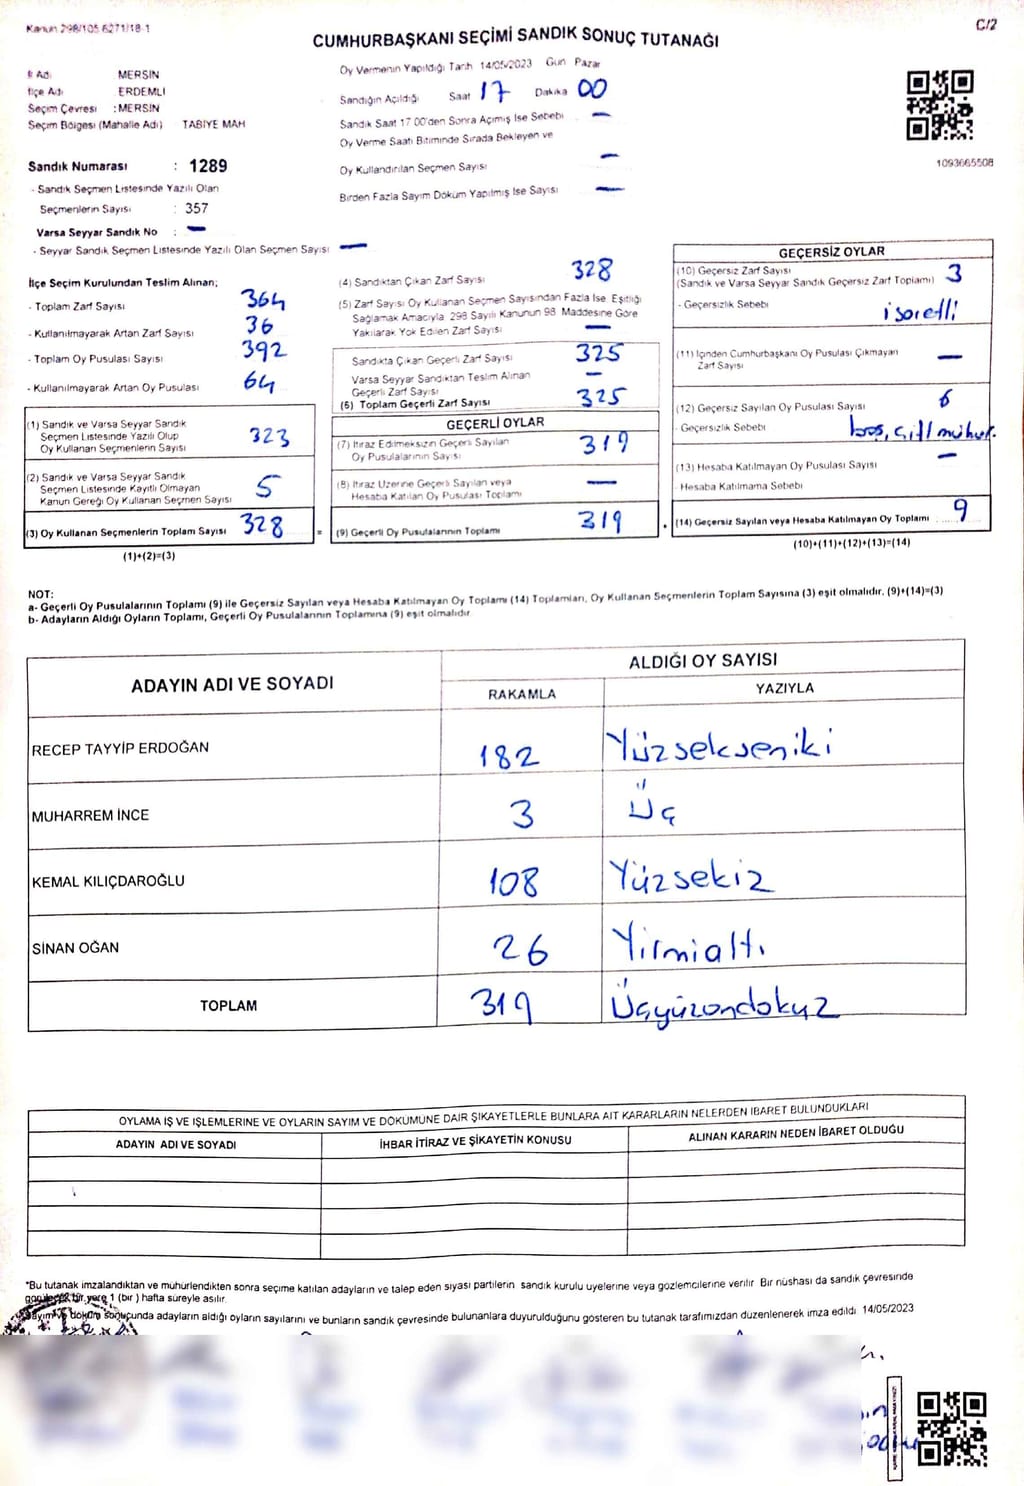 Kanun 298/105 6271/18-1
C/2
CUMHURBAŞKANI SEÇİMİ SANDIK SONUÇ TUTANAĞI
İl Adı MERSİN
İlçe Adı ERDEMLİ
Seçim Çevresi : MERSİN
Seçim Bölgesi (Mahalle Adı) TABİYE MAH
Oy Vermenin Yapıldığı Tarih 14/05/2023 Gün Pazar
Sandığın Açıldığı Saat 17 Dakika 00
Sandık Saat 17 00'den Sonra Açılmış İse Sebebi —
Oy Verme Saati Bitiminde Sırada Bekleyen ve
Oy Kullandırılan Seçmen Sayısı —
Birden Fazla Sayım Döküm Yapılmış İse Sayısı —
1093665508
Sandık Numarası : 1289
- Sandık Seçmen Listesinde Yazılı Olan
Seçmenlerin Sayısı : 357
Varsa Seyyar Sandık No : —
- Seyyar Sandık Seçmen Listesinde Yazılı Olan Seçmen Sayısı —
İlçe Seçim Kurulundan Teslim Alınan;
- Toplam Zarf Sayısı 364
- Kullanılmayarak Artan Zarf Sayısı 36
- Toplam Oy Pusulası Sayısı 392
- Kullanılmayarak Artan Oy Pusulası 64
(1) Sandık ve Varsa Seyyar Sandık
Seçmen Listesinde Yazılı Olup
Oy Kullanan Seçmenlerin Sayısı 323
(2) Sandık ve Varsa Seyyar Sandık
Seçmen Listesinde Kayıtlı Olmayan
Kanun Gereği Oy Kullanan Seçmen Sayısı 5
(3) Oy Kullanan Seçmenlerin Toplam Sayısı 328
(1)+(2)=(3)
(4) Sandıktan Çıkan Zarf Sayısı 328
(5) Zarf Sayısı Oy Kullanan Seçmen Sayısından Fazla İse Eşitliği
Sağlamak Amacıyla 298 Sayılı Kanunun 98 Maddesine Göre
Yakılarak Yok Edilen Zarf Sayısı —
Sandıkta Çıkan Geçerli Zarf Sayısı 325
Varsa Seyyar Sandıktan Teslim Alınan
Geçerli Zarf Sayısı —
(6) Toplam Geçerli Zarf Sayısı 325
GEÇERLİ OYLAR
(7) İtiraz Edilmeksizin Geçerli Sayılan
Oy Pusulalarının Sayısı 319
(8) İtiraz Üzerine Geçerli Sayılan veya
Hesaba Katılan Oy Pusulası Toplamı —
= (9) Geçerli Oy Pusulalarının Toplamı 319
GEÇERSİZ OYLAR
(10) Geçersiz Zarf Sayısı
(Sandık ve Varsa Seyyar Sandık Geçersiz Zarf Toplamı) 3
- Geçersizlik Sebebi işaretli
(11) İçinden Cumhurbaşkanı Oy Pusulası Çıkmayan
Zarf Sayısı —
(12) Geçersiz Sayılan Oy Pusulası Sayısı 6
- Geçersizlik Sebebi boş, çift mühür.
(13) Hesaba Katılmayan Oy Pusulası Sayısı —
- Hesaba Katılmama Sebebi
+ (14) Geçersiz Sayılan veya Hesaba Katılmayan Oy Toplamı 9
(10)+(11)+(12)+(13)=(14)
NOT:
a- Geçerli Oy Pusulalarının Toplamı (9) ile Geçersiz Sayılan veya Hesaba Katılmayan Oy Toplamı (14) Toplamları, Oy Kullanan Seçmenlerin Toplam Sayısına (3) eşit olmalıdır. (9)+(14)=(3)
b- Adayların Aldığı Oyların Toplamı, Geçerli Oy Pusulalarının Toplamına (9) eşit olmalıdır
ADAYIN ADI VE SOYADI
ALDIĞI OY SAYISI
RAKAMLA YAZIYLA
RECEP TAYYİP ERDOĞAN 182 Yüzsekseniki
MUHARREM İNCE 3 Üç
KEMAL KILIÇDAROĞLU 108 Yüzsekiz
SİNAN OĞAN 26 Yirmialtı
TOPLAM 319 Üçyüzondokuz
OYLAMA İŞ VE İŞLEMLERİNE VE OYLARIN SAYIM VE DÖKÜMÜNE DAİR ŞİKAYETLERLE BUNLARA AİT KARARLARIN NELERDEN İBARET BULUNDUKLARI
ADAYIN ADI VE SOYADI İHBAR İTİRAZ VE ŞİKAYETİN KONUSU ALINAN KARARIN NEDEN İBARET OLDUĞU
*Bu tutanak imzalandıktan ve mühürlendikten sonra seçime katılan adayların ve talep eden siyasi partilerin sandık kurulu üyelerine veya gözlemcilerine verilir Bir nüshası da sandık çevresinde
görülecek bir yere 1 (bir ) hafta süreyle asılır.
Sayım ve döküm sonuçunda adayların aldığı oyların sayılarını ve bunların sandık çevresinde bulunanlara duyurulduğunu gösteren bu tutanak tarafımızdan düzenlenerek imza edildi 14/05/2023